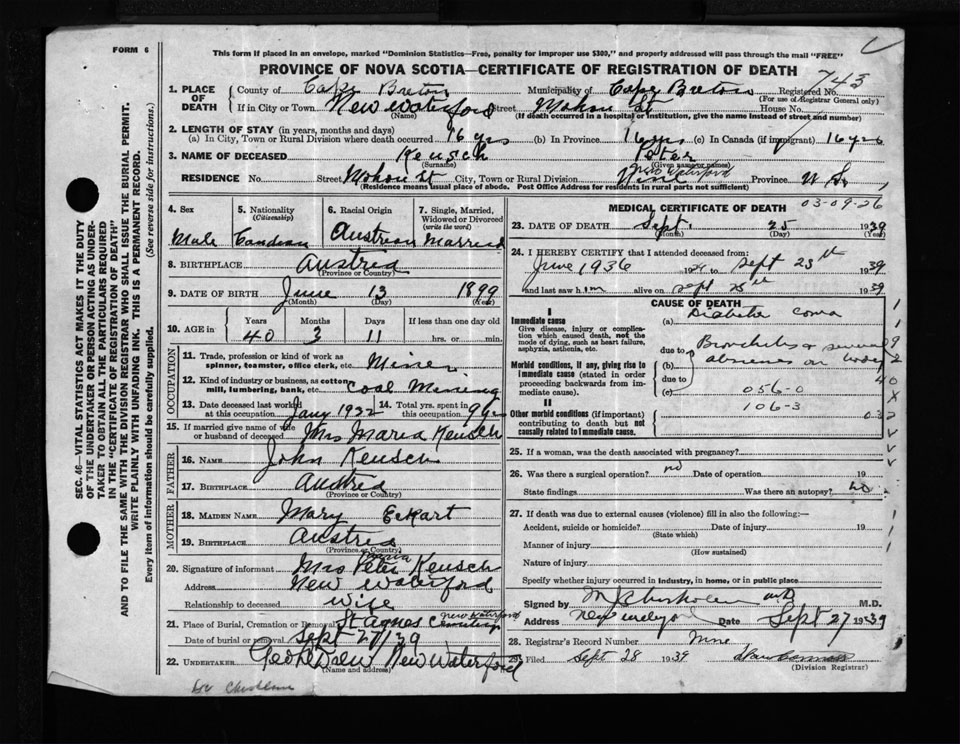 FORM 6
This form if placed in an envelope, marked "Dominion Statistics—Free, penalty for improper use $300," and properly addressed will pass through the mail "FREE"
PROVINCE OF NOVA SCOTIA—CERTIFICATE OF REGISTRATION OF DEATH
743
1. PLACE OF DEATH { County of Cape Breton Municipality of Cape Breton Registered No.
(For use of Registrar General only)
If in City or Town New Waterford Street Mahon St House No.
(Name) (If death occurred in a hospital or institution, give the name instead of street and number)
2. LENGTH OF STAY (in years, months and days)
(a) In City, Town or Rural Division where death occurred 16 yrs (b) In Province 16 yrs (c) In Canada (if immigrant) 16 yrs
3. NAME OF DECEASED Keusch Peter
(Surname) (Given name or names)
RESIDENCE No. Street Mahon St City, Town or Rural Division New Waterford Province N S.
(Residence means usual place of abode. Post Office Address for residents in rural parts not sufficient)
SEC. 46—VITAL STATISTICS ACT MAKES IT THE DUTY
OF THE UNDERTAKER OR PERSON ACTING AS UNDER-
TAKER TO OBTAIN ALL THE PARTICULARS REQUIRED
IN THE "CERTIFICATE OF REGISTRATION OF DEATH"
AND TO FILE THE SAME WITH THE DIVISION REGISTRAR WHO SHALL ISSUE THE BURIAL PERMIT.
WRITE PLAINLY WITH UNFADING INK. THIS IS A PERMANENT RECORD.
Every item of information should be carefully supplied. (See reverse side for instructions.)
4. Sex 5. Nationality (Citizenship) 6. Racial Origin 7. Single, Married, Widowed or Divorced (write the word)
Male Candean Austrian Married
8. BIRTHPLACE Austria
(Province or Country)
9. DATE OF BIRTH June 13 1899
(Month) (Day) (Year)
10. AGE in Years Months Days If less than one day old
40 3 11 hrs. or min.
OCCUPATION
11. Trade, profession or kind of work as spinner, teamster, office clerk, etc. Miner
12. Kind of industry or business, as cotton mill, lumbering, bank, etc. Coal Mining
13. Date deceased last worked at this occupation Jany 1932 14. Total yrs. spent in this occupation 9 yrs
15. If married give name of wife or husband of deceased Mrs Maria Keusch
FATHER
16. NAME John Keusch
17. BIRTHPLACE Austria
(Province or Country)
MOTHER
18. MAIDEN NAME Mary Eckart
19. BIRTHPLACE Austria
(Province or Country)
20. Signature of informant Mrs Peter Maria Keusch
Address New Waterford
Relationship to deceased Wife
21. Place of Burial, Cremation or Removal St Agnes Cemetery New Waterford
Date of burial or removal Sept 27/39
22. UNDERTAKER Geo R Drew New Waterford
(Name and address)
MEDICAL CERTIFICATE OF DEATH 03-09-26
23. DATE OF DEATH Sept. 25 1939
(Month) (Day) (Year)
24. I HEREBY CERTIFY that I attended deceased from:
June 1936 to Sept 25th 1939
and last saw him alive on Sept 25th 1939
CAUSE OF DEATH
I
Immediate cause (a) Diabetic Coma
Give disease, injury or complication which caused death, not the mode of dying, such as heart failure, asphyxia, asthenia, etc.
due to Bronchitis & several
Morbid conditions, if any, giving rise to immediate cause (stated in order proceeding backwards from immediate cause)
(b) abscesses on body
due to
(c) 056-0
II 106-3
Other morbid conditions (if important) contributing to death but not causally related to immediate cause.
25. If a woman, was the death associated with pregnancy?
26. Was there a surgical operation? no Date of operation 19
State findings Was there an autopsy? no
27. If death was due to external causes (violence) fill in also the following:—
Accident, suicide or homicide? Date of injury 19
(State which)
Manner of injury
(How sustained)
Nature of injury
Specify whether injury occurred in industry, in home, or in public place
Signed by M J Chisholm M.D. M.D.
Address Date Sept 27 1939
28. Registrar's Record Number
29. Filed Sept 28 1939
(Division Registrar)
Dr Chisholm